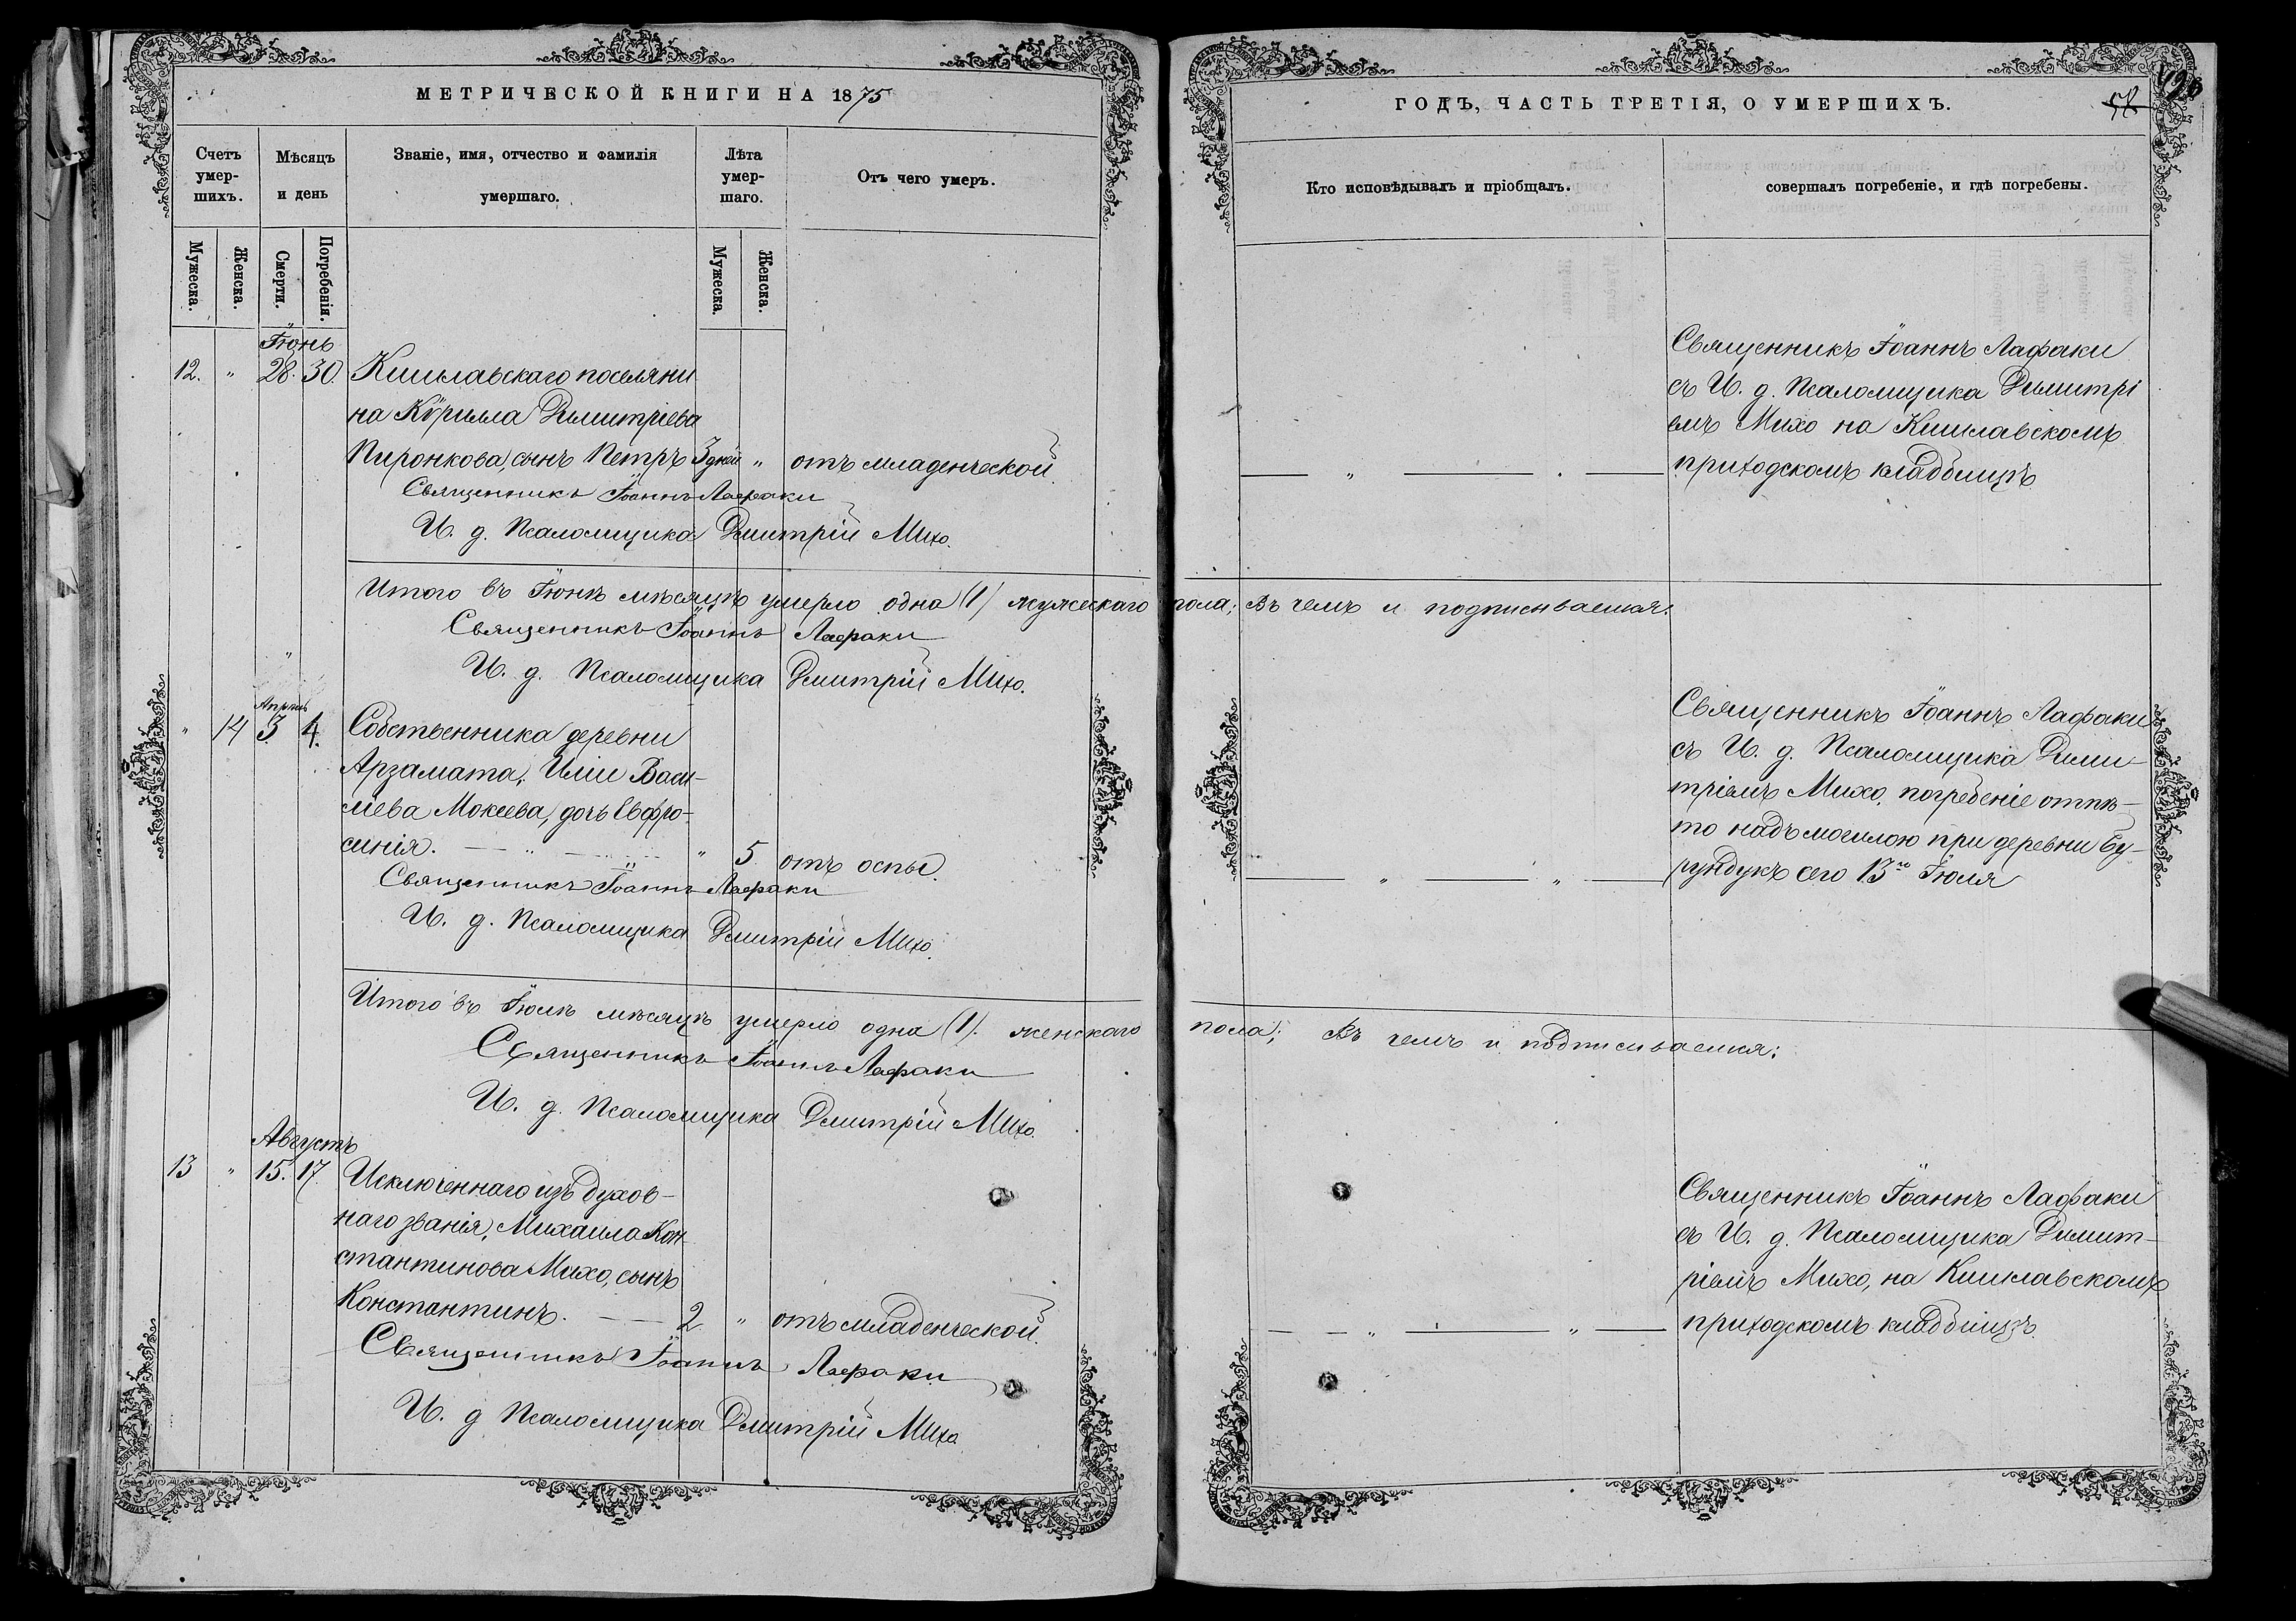 МЕТРИЧЕСКОЙ КНИГИ НА 1875
Счетъ умер-шихъ.
Мѣсяцъ и день
Званіе, имя, отчество и фамилія умершаго.
Лѣта умер-шаго.
Отъ чего умеръ.
Мужеска.
Женска.
Смерти.
Погребенія.
Мужеска.
Женска.
Іюнь
12. " 28. 30. Кишлавскаго поселяни
на Кѵрилла Димитріева
Пиронкова, сынъ Петръ 3 дней " отъ младенческой.
Священникъ Іоаннъ Лафаки
И. д. Псаломщика Дмитрій Михо.
Итого въ Іюнѣ мѣсяцѣ умерло одна (1) мужескаго
Священникъ Іоаннъ Лафаки
И. д. Псаломщика Дмитрій Михо.
Апрѣль
" 14 3. 4. Собственника деревни
Арзамата, Иліи Васи-
лiева Мокеева, дочь Евфро-
синія. " 5 отъ оспы.
Священникъ Іоаннъ Лафаки
И. д. Псаломщика Дмитрій Михо.
Итого въ Іюлѣ мѣсяцѣ умерло одна (1). женскаго
Священникъ Іоаннъ Лафаки
И. д. Псаломщика Дмитрій Михо.
Августъ
13 " 15. 17. Исключеннаго изъ духов-
наго званія, Михаила Кон-
стантинова Михо, сынъ
Константинъ. 2 " отъ младенческой.
Священникъ Іоаннъ Лафаки
И. д Псаломщика Дмитрій Михо
ГОДЪ, ЧАСТЬ ТРЕТІЯ, О УМЕРШИХЪ.
Кто исповѣдывалъ и пріобщалъ.
совершалъ погребеніе, и гдѣ погребены.
Священникъ Іоаннъ Лафаки
съ И. д. Псаломщика Димитрі
емъ Михо на Кишлавскомъ
приходскомъ кладбищѣ.
пола; Въ чемъ и подписываемся:
Священникъ Іоаннъ Лафаки
съ И. д. Псаломщика Дими-
тріемъ Михо, погребеніе отпѣ-
то надъ могилою при деревни Бу-
рундукъ сего 13го Іюля
пола; Въ чемъ и подписываемся:
Священникъ Іоаннъ Лафаки
съ И. д. Псаломщика Димит-
ріемъ Михо, на Кишлавскомъ
приходскомъ кладбищѣ.